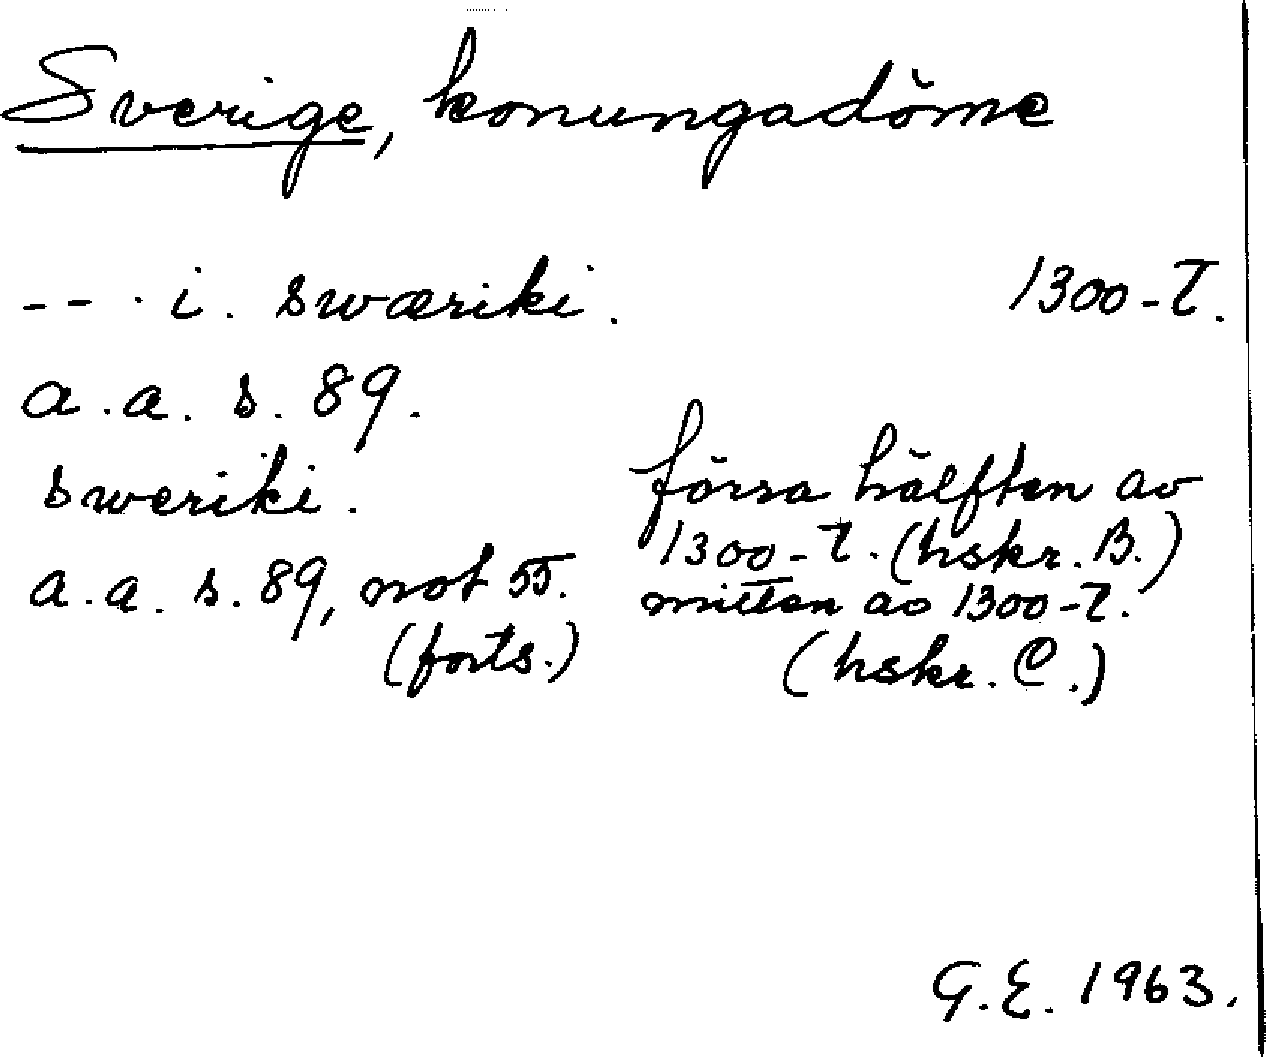 Sverige, konungadöme
-- . i. swæriki. 1300-T.
a.a. s. 89.
sweriki. förra hälften av
1300-T. (hskr. B.)
a.a. s. 89, not 55. mitten av 1300-T.
(forts.) (hskr. C.)
G.E. 1963.